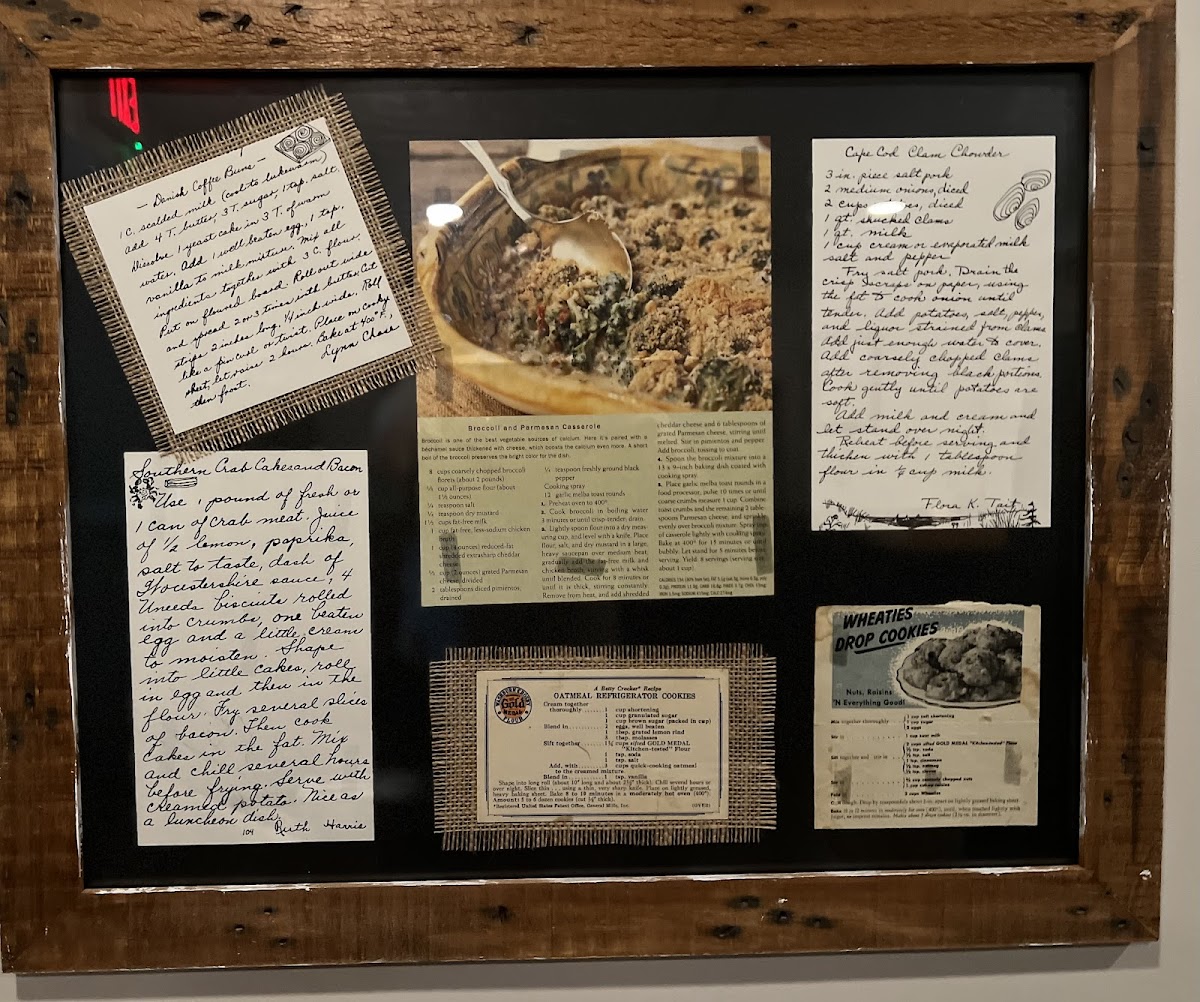 — Danish Coffee Buns —
1 C. scalded milk (cool to lukewarm)
add 4 T. butter, 3 T. sugar, 1 tsp. salt.
Dissolve 1 yeast cake in 3 T. of warm
water. Add 1 well beaten egg, 1 tsp.
vanilla to milk mixture. Mix all
ingredients together with 3 C. flour.
Put on floured board. Roll out wide
and spread 2 or 3 times with butter. Cut
strips 2 inches long, 1/4 inch wide. Roll
like a pincurl or twist. Place on cooky
sheet, let raise 2 hours. Bake at 400°F,
then frost.
Lynn Chase
Southern Crab Cakes and Bacon
Use 1 pound of fresh or
1 can of crab meat. Juice
of 1/2 lemon, paprika,
salt to taste, dash of
Worcestershire sauce, 4
Uneeda biscuits rolled
into crumbs, one beaten
egg and a little cream
to moisten. Shape
into little cakes, roll
in egg and then in the
flour. Fry several slices
of bacon. Then cook
cakes in the fat. Mix
and chill several hours
before frying. Serve with
creamed potato. Nice as
a luncheon dish.
104 Ruth Harris
Broccoli and Parmesan Casserole
Broccoli is one of the best vegetable sources of calcium. Here it's paired with a
béchamel sauce thickened with cheese, which boosts the calcium even more. A short
boil of the broccoli preserves the bright color for the dish.
8 cups coarsely chopped broccoli
florets (about 2 pounds)
cup all-purpose flour (about
1½ ounces)
teaspoon salt
teaspoon dry mustard
1½ cups fat-free milk
1 cup fat-free, less-sodium chicken
broth
1 cup (4 ounces) reduced-fat
shredded extrasharp cheddar
cheese
½ cup (2 ounces) grated Parmesan
cheese, divided
2 tablespoons diced pimientos,
drained
¼ teaspoon freshly ground black
pepper
Cooking spray
12 garlic melba toast rounds
1. Preheat oven to 400°.
2. Cook broccoli in boiling water
3 minutes or until crisp-tender; drain.
3. Lightly spoon flour into a dry meas-
uring cup, and level with a knife. Place
flour, salt, and dry mustard in a large,
heavy saucepan over medium heat,
gradually add the fat-free milk and
chicken broth, stirring with a whisk
until blended. Cook for 8 minutes or
until it is thick, stirring constantly.
Remove from heat, and add shredded
cheddar cheese and 6 tablespoons of
grated Parmesan cheese, stirring until
melted. Stir in pimientos and pepper.
Add broccoli, tossing to coat.
4. Spoon the broccoli mixture into a
13 x 9-inch baking dish coated with
cooking spray.
5. Place garlic melba toast rounds in a
food processor, pulse 10 times or until
coarse crumbs measure 1 cup. Combine
toast crumbs and the remaining 2 table-
spoons Parmesan cheese, and sprinkle
evenly over broccoli mixture. Spray top
of casserole lightly with cooking spray.
Bake at 400° for 15 minutes or until
bubbly. Let stand for 5 minutes before
serving. Yield: 8 servings (serving size:
about 1 cup).
A Betty Crocker* Recipe
OATMEAL REFRIGERATOR COOKIES
Gold
MEDAL
FLOUR
Cream together
thoroughly ........ 1 cup shortening
1 cup granulated sugar
1 cup brown sugar (packed in cup)
Blend in ........ eggs, well beaten
tbsp. grated lemon rind
tbsp. molasses
Sift together ........ cups sifted GOLD MEDAL
"Kitchen-tested" Flour
1 tsp. soda
1 tsp. salt
Add, with ........ 3 cups quick-cooking oatmeal
to the creamed mixture.
Blend in ........ 1 tsp. vanilla
Shape into long roll (about 10" long and about 2½" thick). Chill several hours or
over night. Slice thin . . . using a thin, very sharp knife. Place on lightly greased,
heavy baking sheet. Bake 8 to 10 minutes in a moderately hot oven (400°).
Amount: 5 to 6 dozen cookies
*Registered United States Patent Office, General Mills, Inc.
Cape Cod Clam Chowder
3 in. piece salt pork
2 medium onions, diced
2 cups diced
1 qt. shucked clams
1 qt. milk
1 cup cream or evaporated milk
salt and pepper
Fry salt pork. Drain the
crisp "scraps" on paper, using
the fat to cook onion until
tender. Add potatoes, salt, pepper,
and liquor strained from clams.
Add just enough water to cover.
Add coarsely chopped clams
after removing black portions.
Cook gently until potatoes are
soft.
Add milk and cream and
let stand over night.
Reheat before serving and
thicken with 1 tablespoon
flour in ½ cup milk.
Flora K. Tait
WHEATIES
DROP COOKIES
Nuts, Raisins
'N Everything Good!
Mix together thoroughly
cup soft shortening
eggs
cup sour milk
2 cups sifted GOLD MEDAL "Kitchen-tested" Flour
tsp. soda
tsp. salt
tsp. cinnamon
cups Wheaties